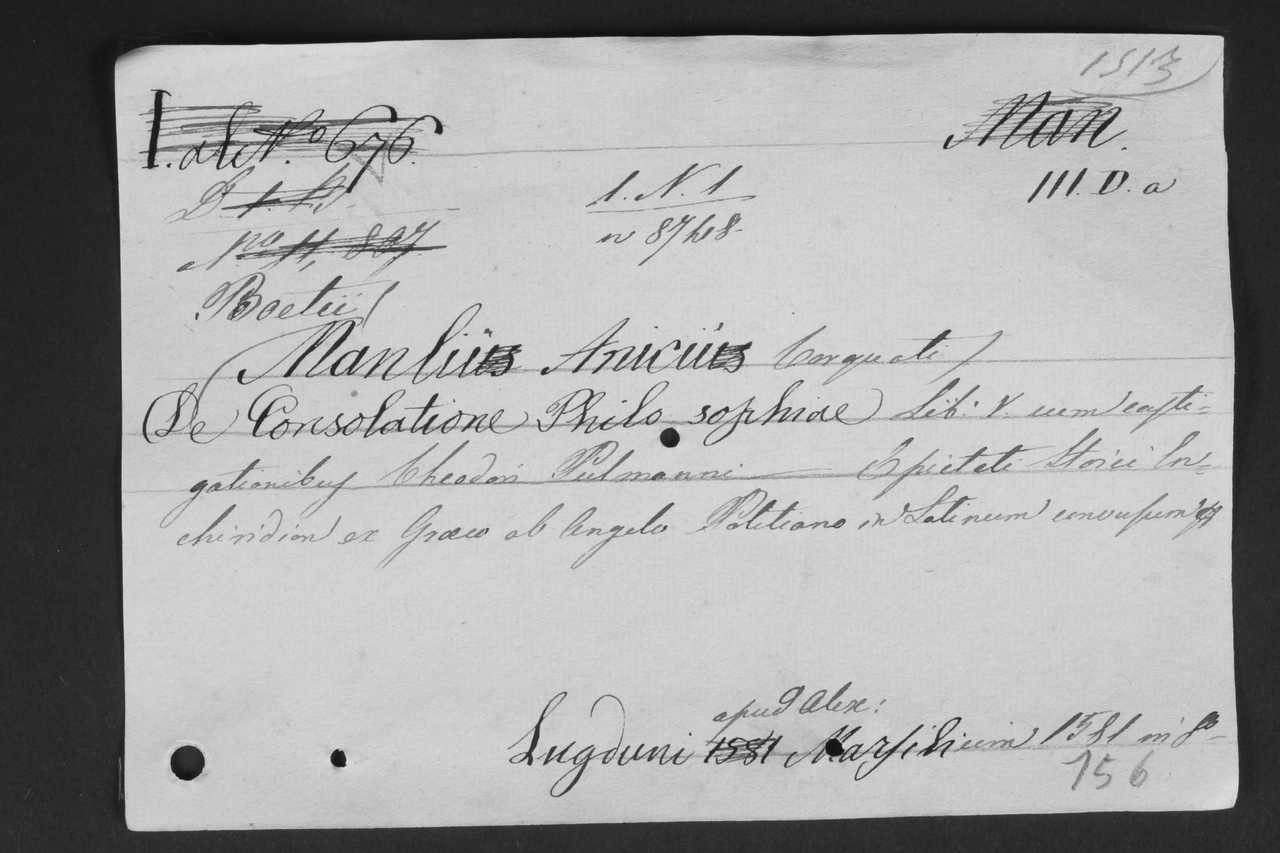 1513
I. a le N.º 676. Man.
1. N. 1 III. D. a
n 8768
Boetii (
Manlii Anicii Torquati )
De Consolatione Philosophiae Lib: V. cum casti=
gationibus Theodori Pulmanni — Epicteti Stoici En=
chiridion ex Graeco ab Angelo Politiano in Latinum conversum
apud Alex:
Lugduni 1581 Marsilium 1581 in 8º
156